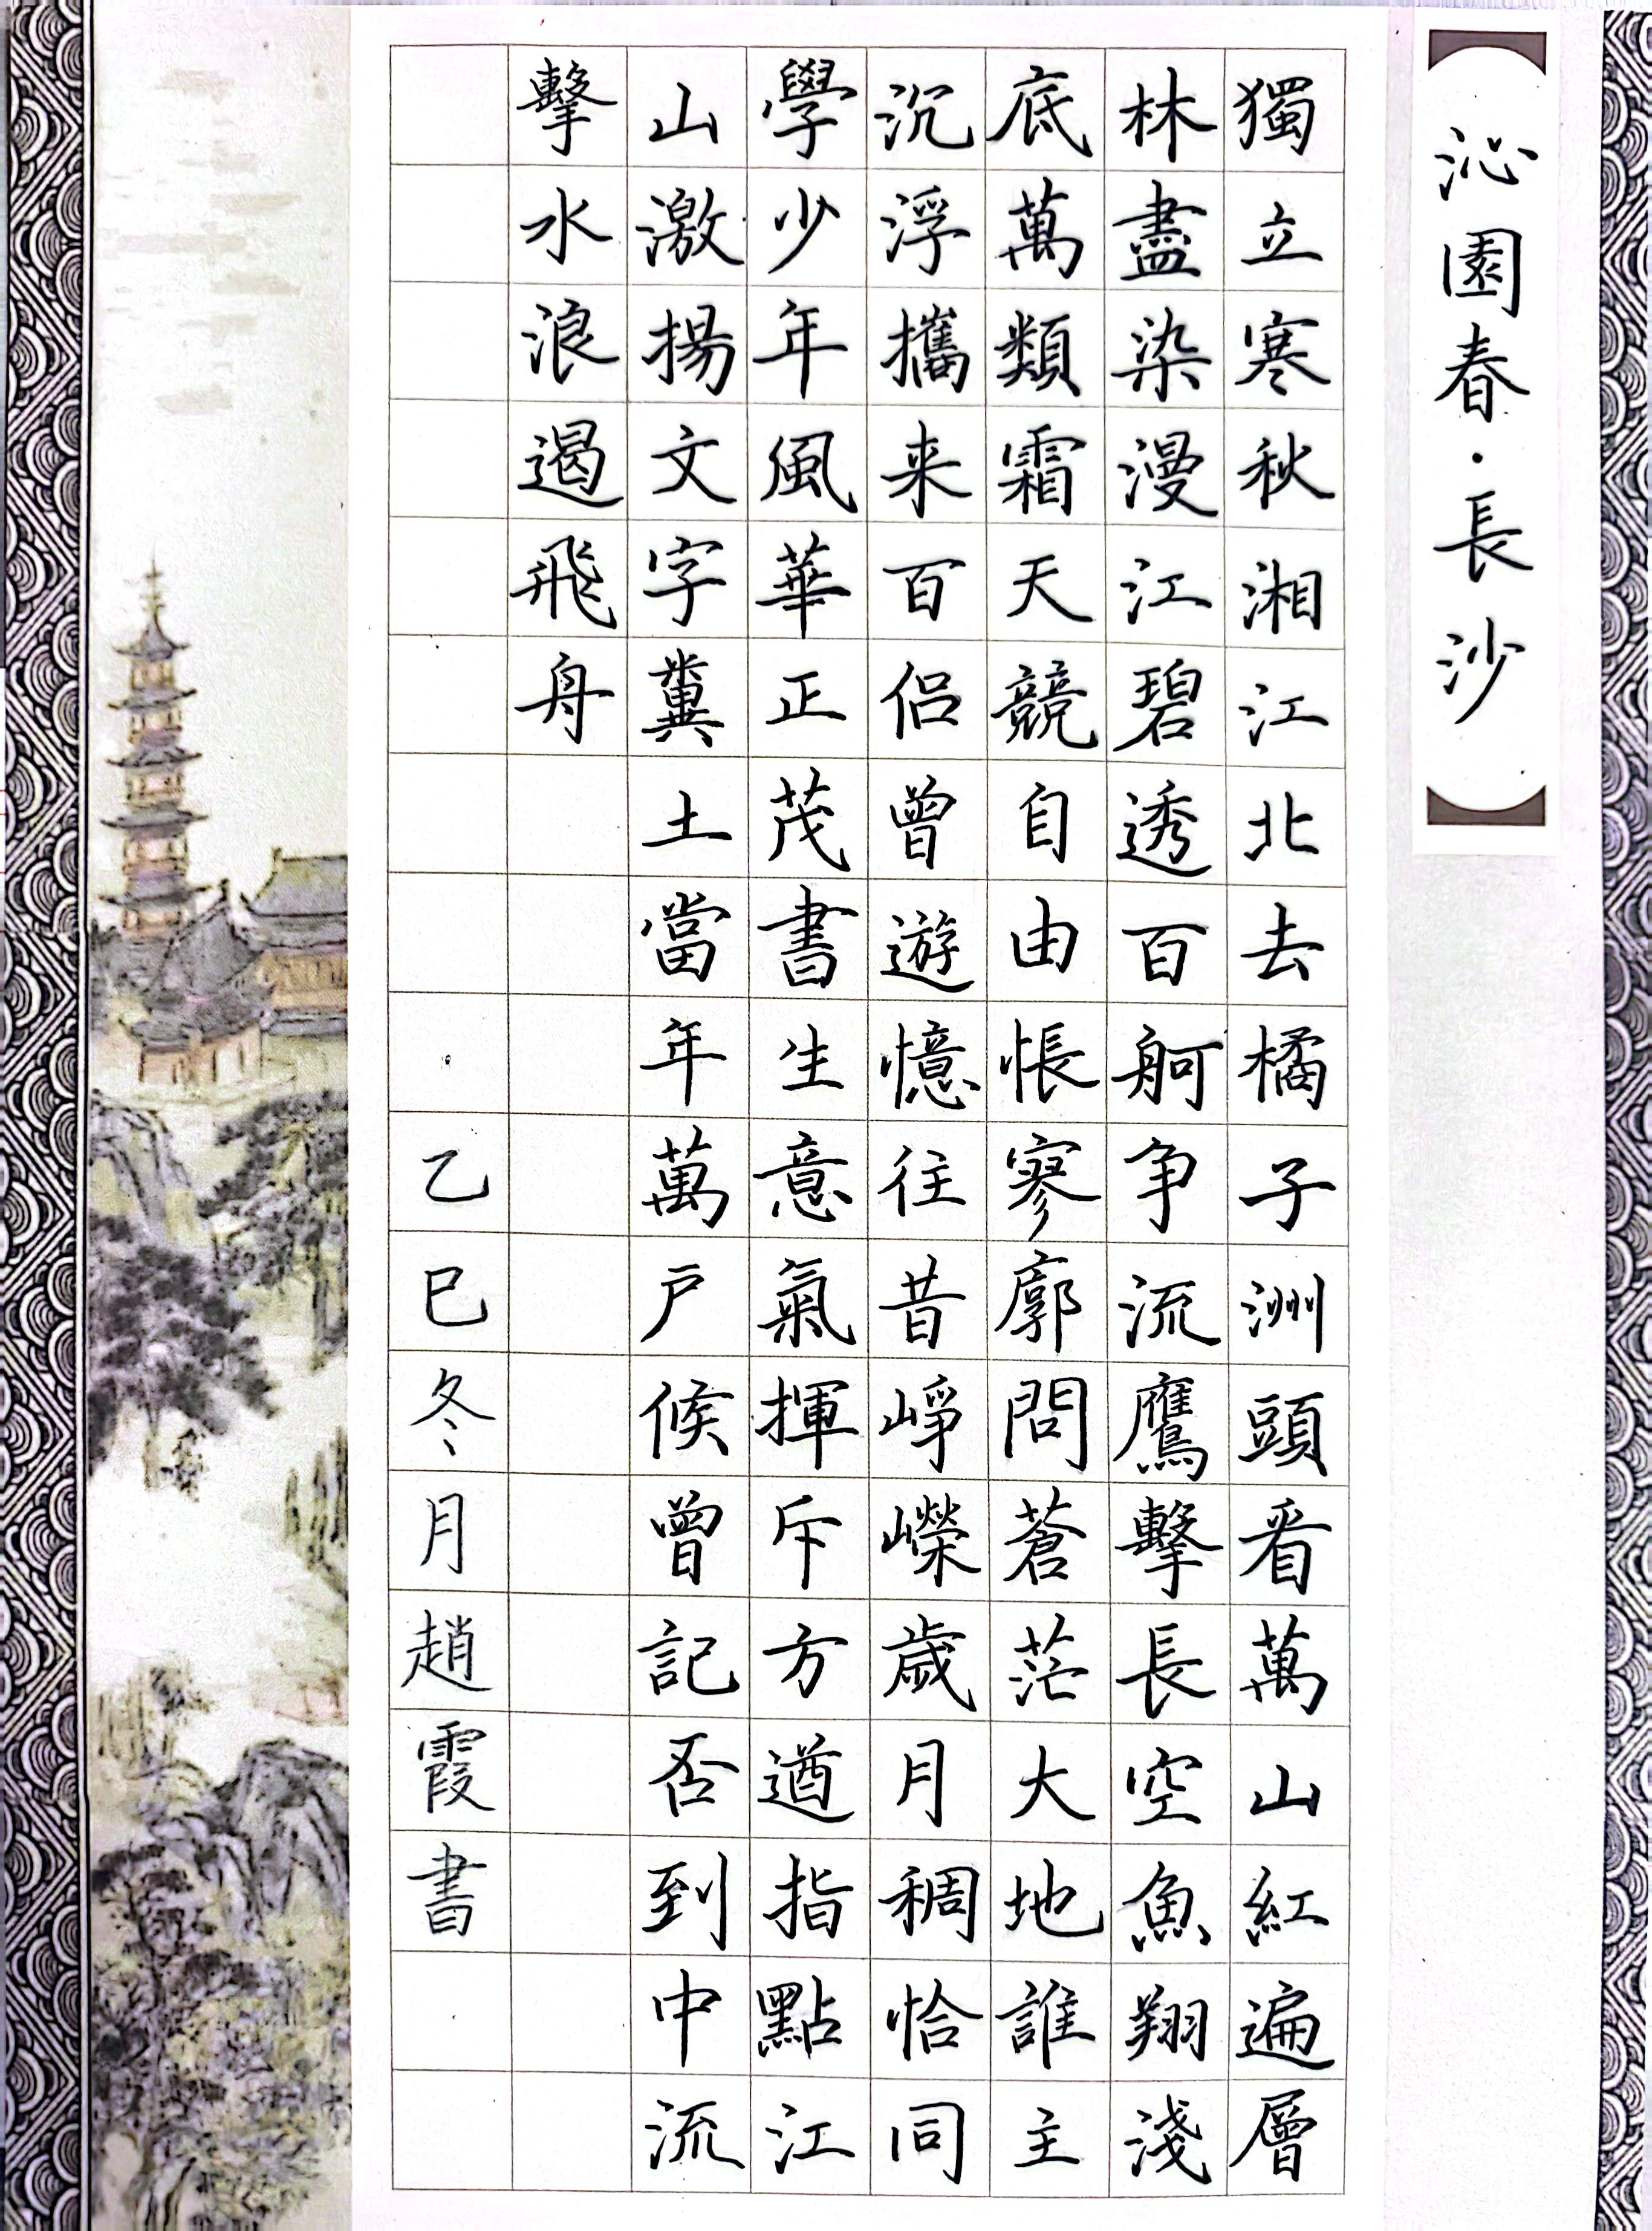 【沁園春·長沙】
獨立寒秋湘江北去橘子洲頭看萬山紅遍層
林盡染漫江碧透百舸争流鷹擊長空魚翔淺
底萬類霜天競自由悵寥廓問蒼茫大地誰主
沉浮攜来百侣曾遊憶往昔崢嶸歲月稠恰同
學少年風華正茂書生意氣揮斥方遒指點江
山激揚文字糞土當年萬戶候曾記否到中流
擊水浪遏飛舟
乙巳冬月趙霞書